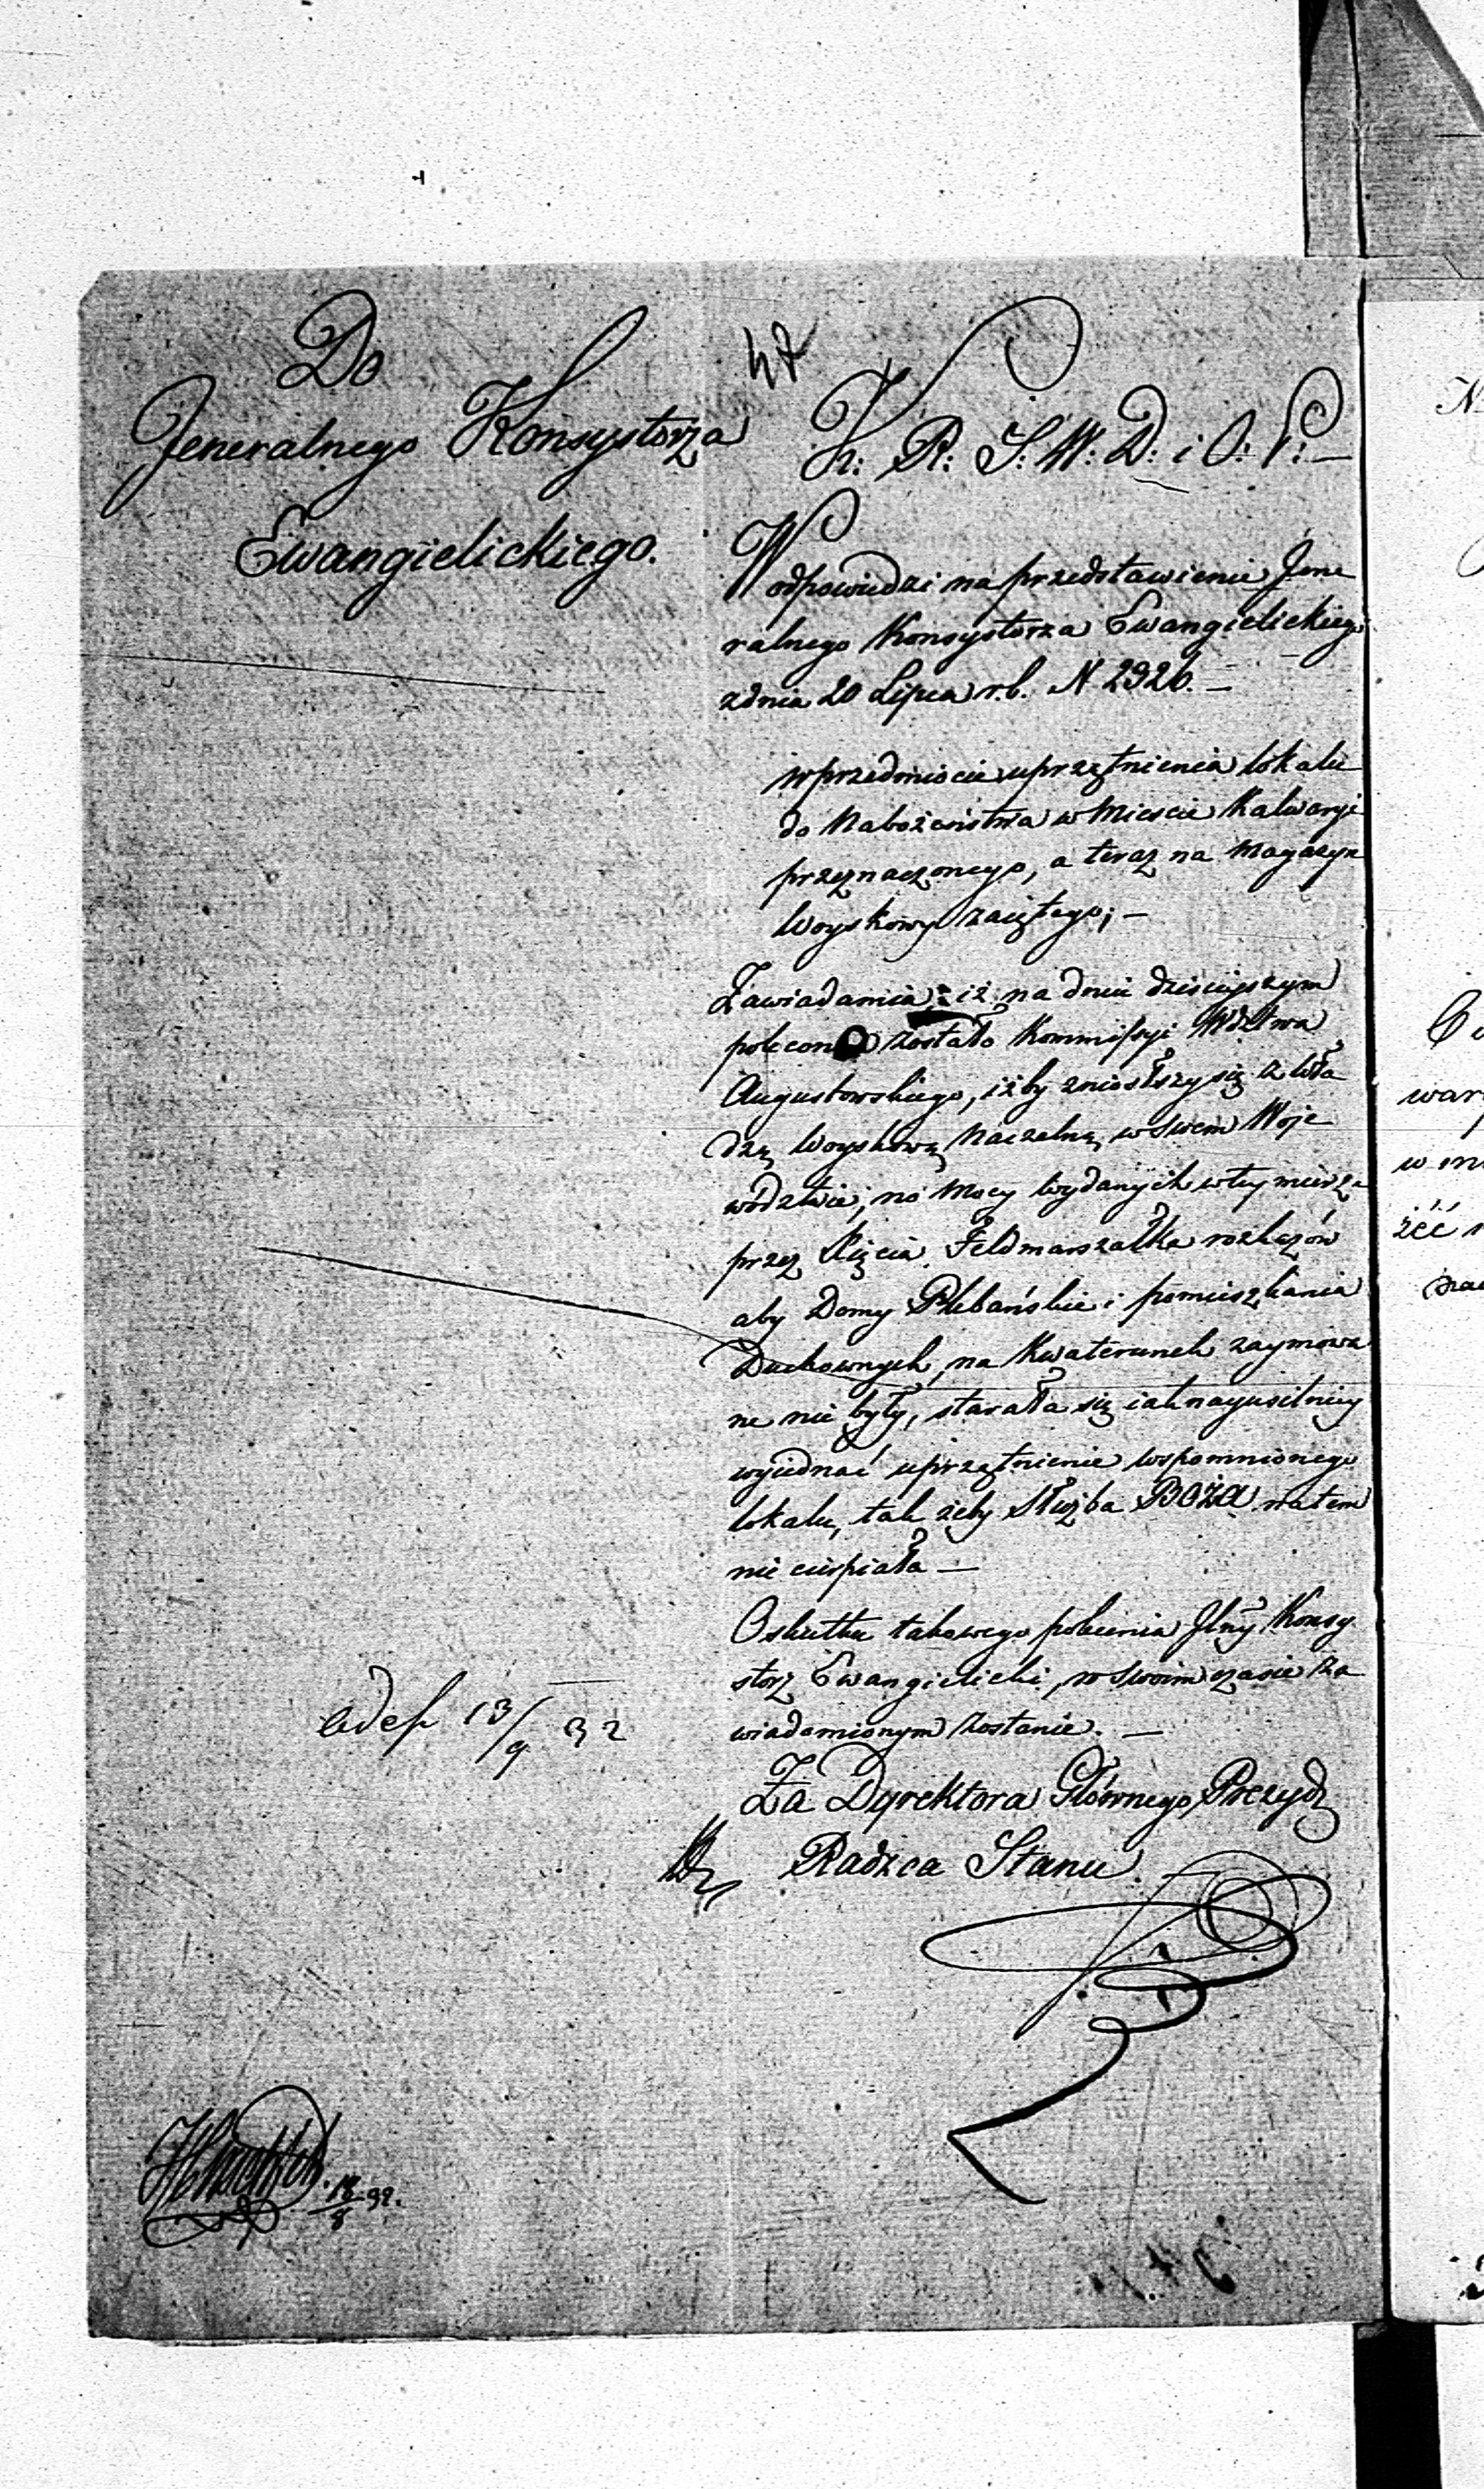 Do
Jeneralnego Konsystorza
Ewangielickiego.
47
K: R: S: W: D: i O: P:—
W odpowiedzi na przedstawienie Jene
ralnego Konsystorza Ewangielickiego
z dnia 20 Lipca r. b. N 2926. —
w przedmiocie uprzątnienia lokalu
do Nabożeństwa w Mieście Kalwaryi
przeznaczonego, a teraz na Magazyn
Woyskowy zaiętego; —
Zawiadamia: iż na dniu dzisiejszym
polecono zostało Kommissyi Wdztwa
Augustowskiego, iżby zniosłszy się z Wła
dzą Woyskową Naczelną w swem Woje
wództwie, na Mocy wydanych w tey mierze
przez Xięcia Feldmarszałka rozkazów
aby Domy Plebańskie i pomieszkania
Duchownych, na Kwaterunek zaymowa
ne nie były, starała się iak nayusilniey
wyiednać uprzątnienie wspomnionego
lokalu, tak żeby Służba Boża na tem
nie cierpiała —
O skutku takowego polecenia Jlny Konsy
storz Ewangielicki, w swoim czasie za
wiadomionym zostanie. —
Za Dyrektora Głównego Prezyd
Radzca Stanu
13/9 32